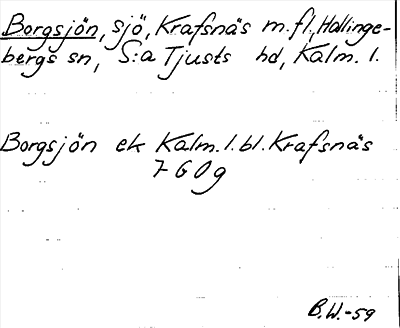 Borgsjön, sjö, Krafsnäs m.fl., Hallinge-
bergs sn, S:a Tjusts hd, Kalm. l.
Borgsjön ek Kalm. l. bl. Krafsnäs
7 G 0 g
B.W.-59